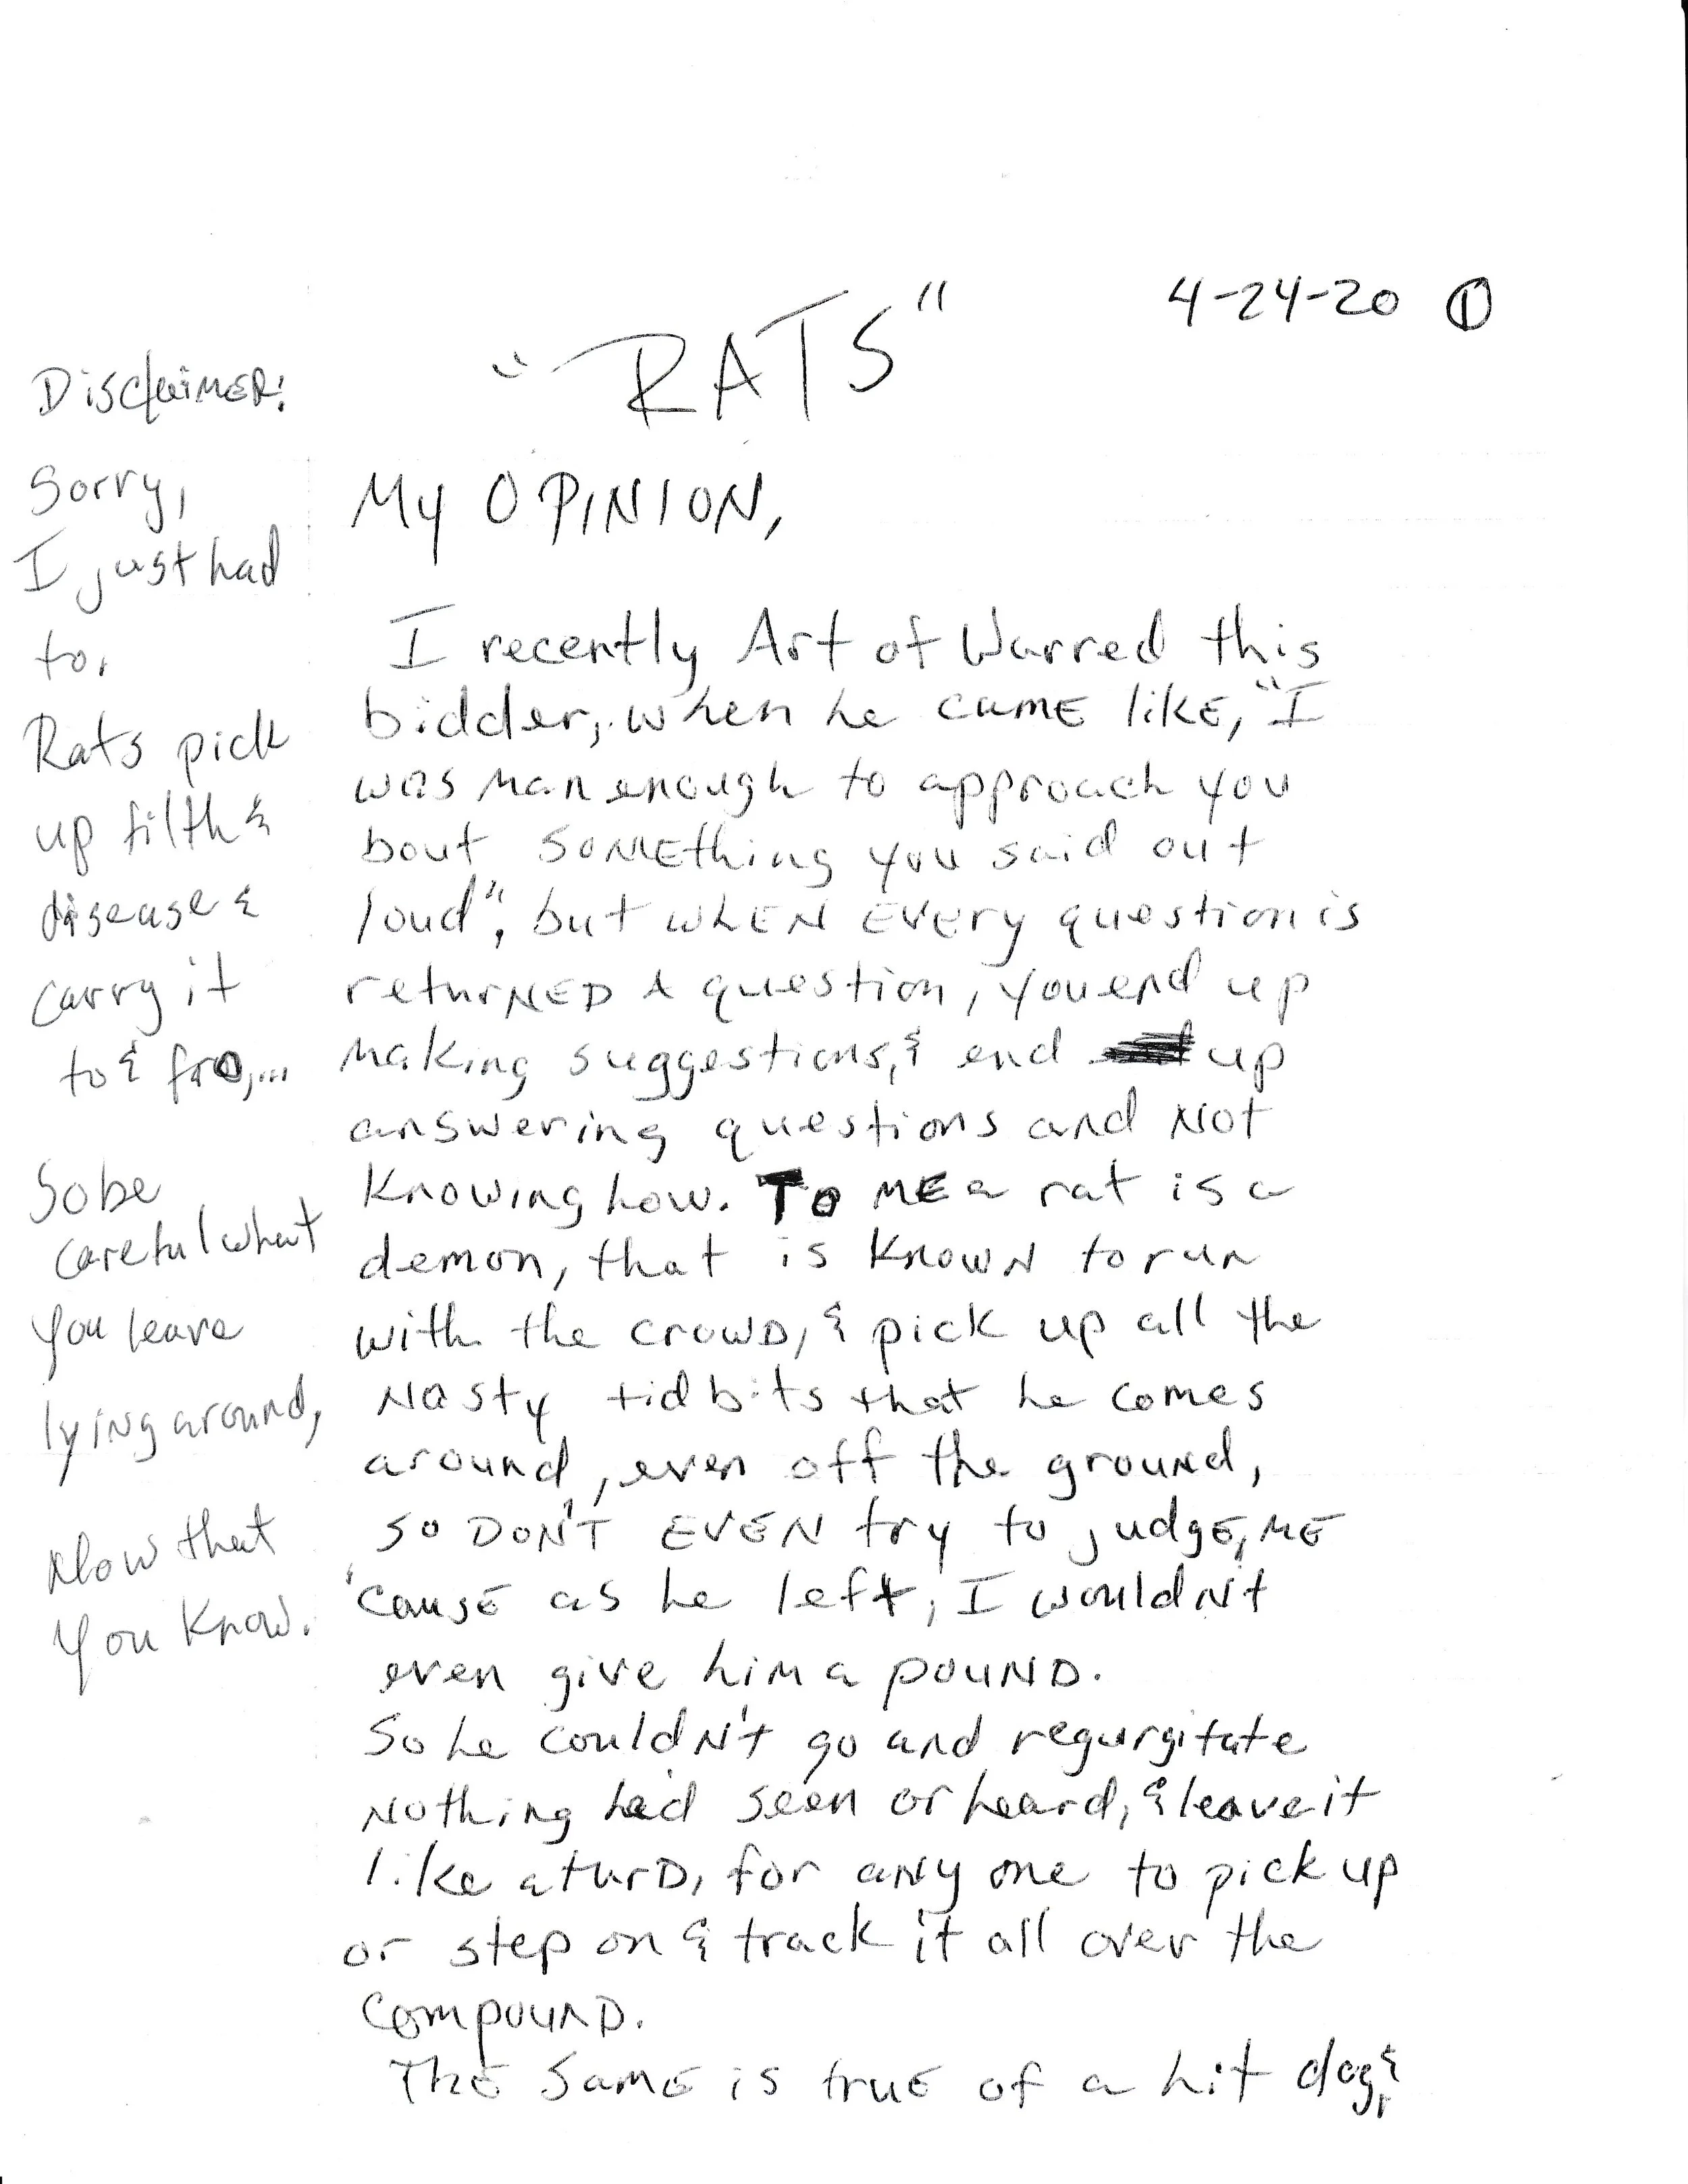 4-24-20 ①
"RATS"
My OPINION,
I recently Art of Warred this
bidder, when he camE likE, "I
was Man enough to approach you
bout SOMEthing you said out
loud", but whEN EvEry question is
returNED A question, you end up
Making suggestions, & end up
answering questions and Not
Knowing how. To ME a rat is a
demon, that is KnowN to run
with the crowD, & pick up all the
Nasty tidbits that he comes
around, even off the grouNd,
so DON'T EVEN try to judgE, ME
'causE as he left, I wouldN't
even give him a pouND.
So he couldN't go and regurgitate
Nothing had seen or heard, & leave it
like a turD, for aNy one to pick up
or step on & track it all over the
CompouND.
ThE SamE is truE of a hit dog, &
DisclaiMER:
Sorry,
I just had
to,
Rats pick
up filth &
disease &
carry it
to & fro,...
So be
careful what
you leave
lying around,
Now that
you Know.